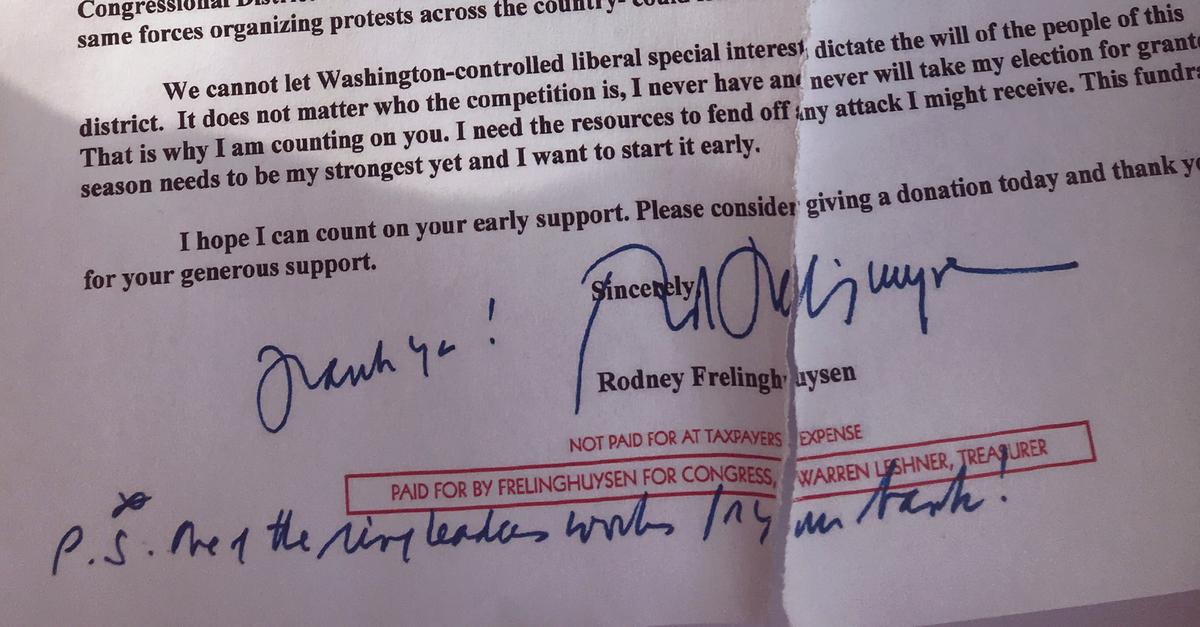 Congressional
same forces organizing protests across the country-
We cannot let Washington-controlled liberal special interest dictate the will of the people of this
district. It does not matter who the competition is, I never have and never will take my election for
That is why I am counting on you. I need the resources to fend off any attack I might receive. This
season needs to be my strongest yet and I want to start it early.
I hope I can count on your early support. Please consider giving a donation today and thank
for your generous support.
Sincerely
Thank you!
Rodney Frelinghuysen
NOT PAID FOR AT TAXPAYERS EXPENSE
PAID FOR BY FRELINGHUYSEN FOR CONGRESS, WARREN LESHNER, TREASURER
P.S. One of the ringleaders works in your bank!